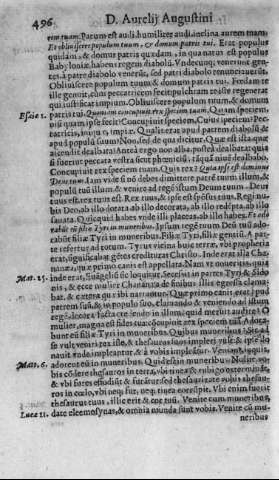 496 D. Aurelij Augustini
rem tuam. Parum est audi. humiliter audi. inclina aurem tuam.
Et obliuiscere populum tuum, & domum patris tui. Erat populus
quidam, & domus patris quædam, in qua natus es: populus
Babyloniæ habens regem diabolũ. Vndecunq; venerint gen-
tes, à patre diabolo venerũt, sed patri diabolo renuntiauerũt.
Obliuiscere populum tuum, & domum patris tui. Fœdam te
ille genuit, cum peccatricem fecit: pulchram te iste regenerat
qui iustificat impium. Obliuiscere populum tuum, & domum
Esaiæ 1. patris tui. Quoniam concupiuit rex speciem tuam. Quam speciem,
nisi quam ipse fecit? Concupiuit speciem. Cuius speciem? Pec-
catricis, iniquæ, impiæ. Qualis erat apud patrem diabolũ &
apud populũ suum? Non, sed de qua dicitur, Quæ est ista quæ
ascendit dealbata? Antea ergo non alba, postea dealbata: quia
si fuerint peccata vestra sicut phœniciũ, tãquã niuẽ dealbabo.
Concupiuit rex speciem tuam. Quis rex? Quia ipse est dominus
Deus tuus. Iam vide si nõ debes dimittere patrẽ illum, & illum
populũ tuũ illum & venire ad regẽ istum Deum tuum. Deus
tuus est. rex tuus est. Rex tuus, & ipse est sponsus tuus. Regi nu-
bis Deo, ab illo dotata ab illo decorata, ab illo redempta, ab illo
sanata. Quicquid habes vnde illi placeas, ab illo habes. Et ado
rabũt eũ filiæ Tyri in muneribus. Ipsum regẽ tuum Deũ tuũ ado-
rabũt filiæ Tyri in muneribus. Filiæ Tyri, filiæ gentiũ. A par-
te refertur ad totum. Tyrus vicina huic terræ, vbi prophetia
erat, significabat gẽtes credituras Christo. Inde erat illa Cha-
nanæa, quæ primo canis est appellata. Nam vt noueritis, quia
Mat. 15. inde erat, Euangelium sic loquitur. Secessit in partes Tyri & Sido
nis, & ecce mulier Chananæa de finibus illis egressa clama-
bat, & cætera quæ ibi narrantur. Quæ primo canis erat apud
patrem suũ, & in populo suo, clamando & veniendo ad istum
regẽ, decora facta credendo in illum: quid meruit audire? O
mulier, magna est fides tua. Concupiuit rex speciem tuã. Adora-
bunt eũ filiæ Tyri in muneribus. Quibus muneribus? Sic ad
se vult veniri rex iste, & thesauros suos impleri vult: & ipse do
nauit vnde impleantur, & à vobis impleãtur. Veniant, inquit,
adorent eũ in muneribus. Quid est in muneribus? Nolite vo-
Mat. 6. bis cõdere thesauros in terra, vbi tinea & rubigo exterminat,
& vbi fures effodiũt & furãtur: sed thesaurizate vobis thesau-
ros in cœlo, vbi nec fur, neq; tinea corrũpit. Vbi enim fuerit
thesaurus tuus, illic erit & cor tuũ. Venite cum muneribus,
Lucæ 11. date eleemosynas, & omnia munda sunt vobis. Venite cũ mu-
neribus